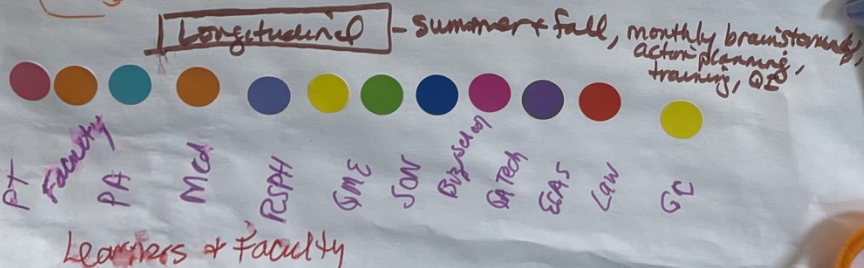 Longitudinal - summer + fall, monthly brainstorming,
action planning,
training, QI
PT Faculty PA Med RSPH GME SON Biz School GA Tech ECAS Law GC
Learners + Faculty